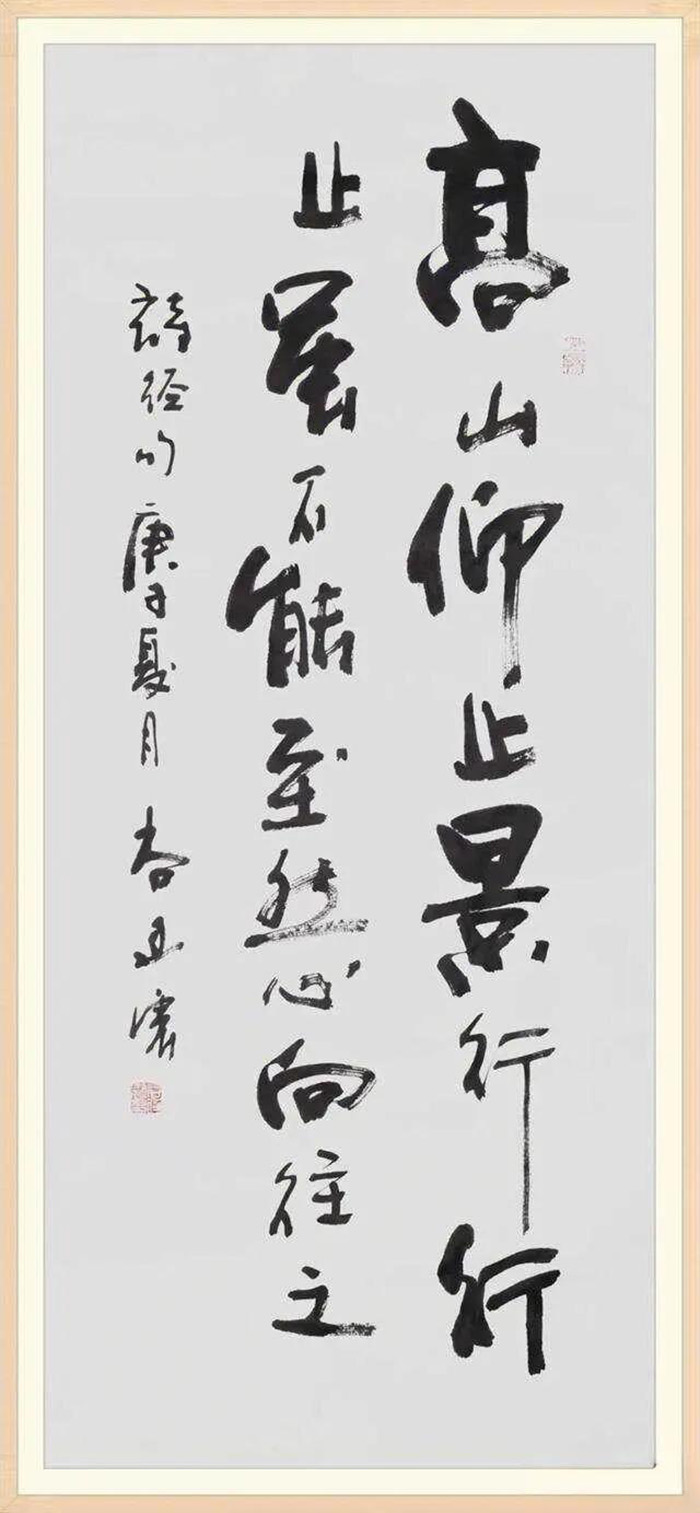 高山仰止景行行
止虽不能至然心向往之
诗经句庚子夏月